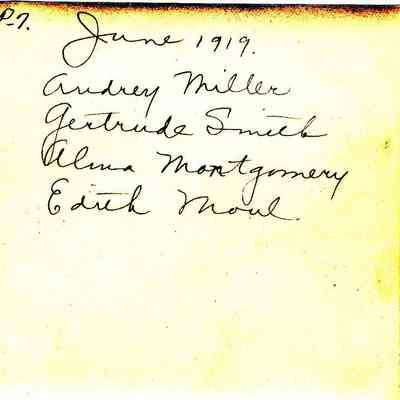 P-7.
June 1919.
Audrey Miller
Gertrude Smith
Alma Montgomery
Edith Moul